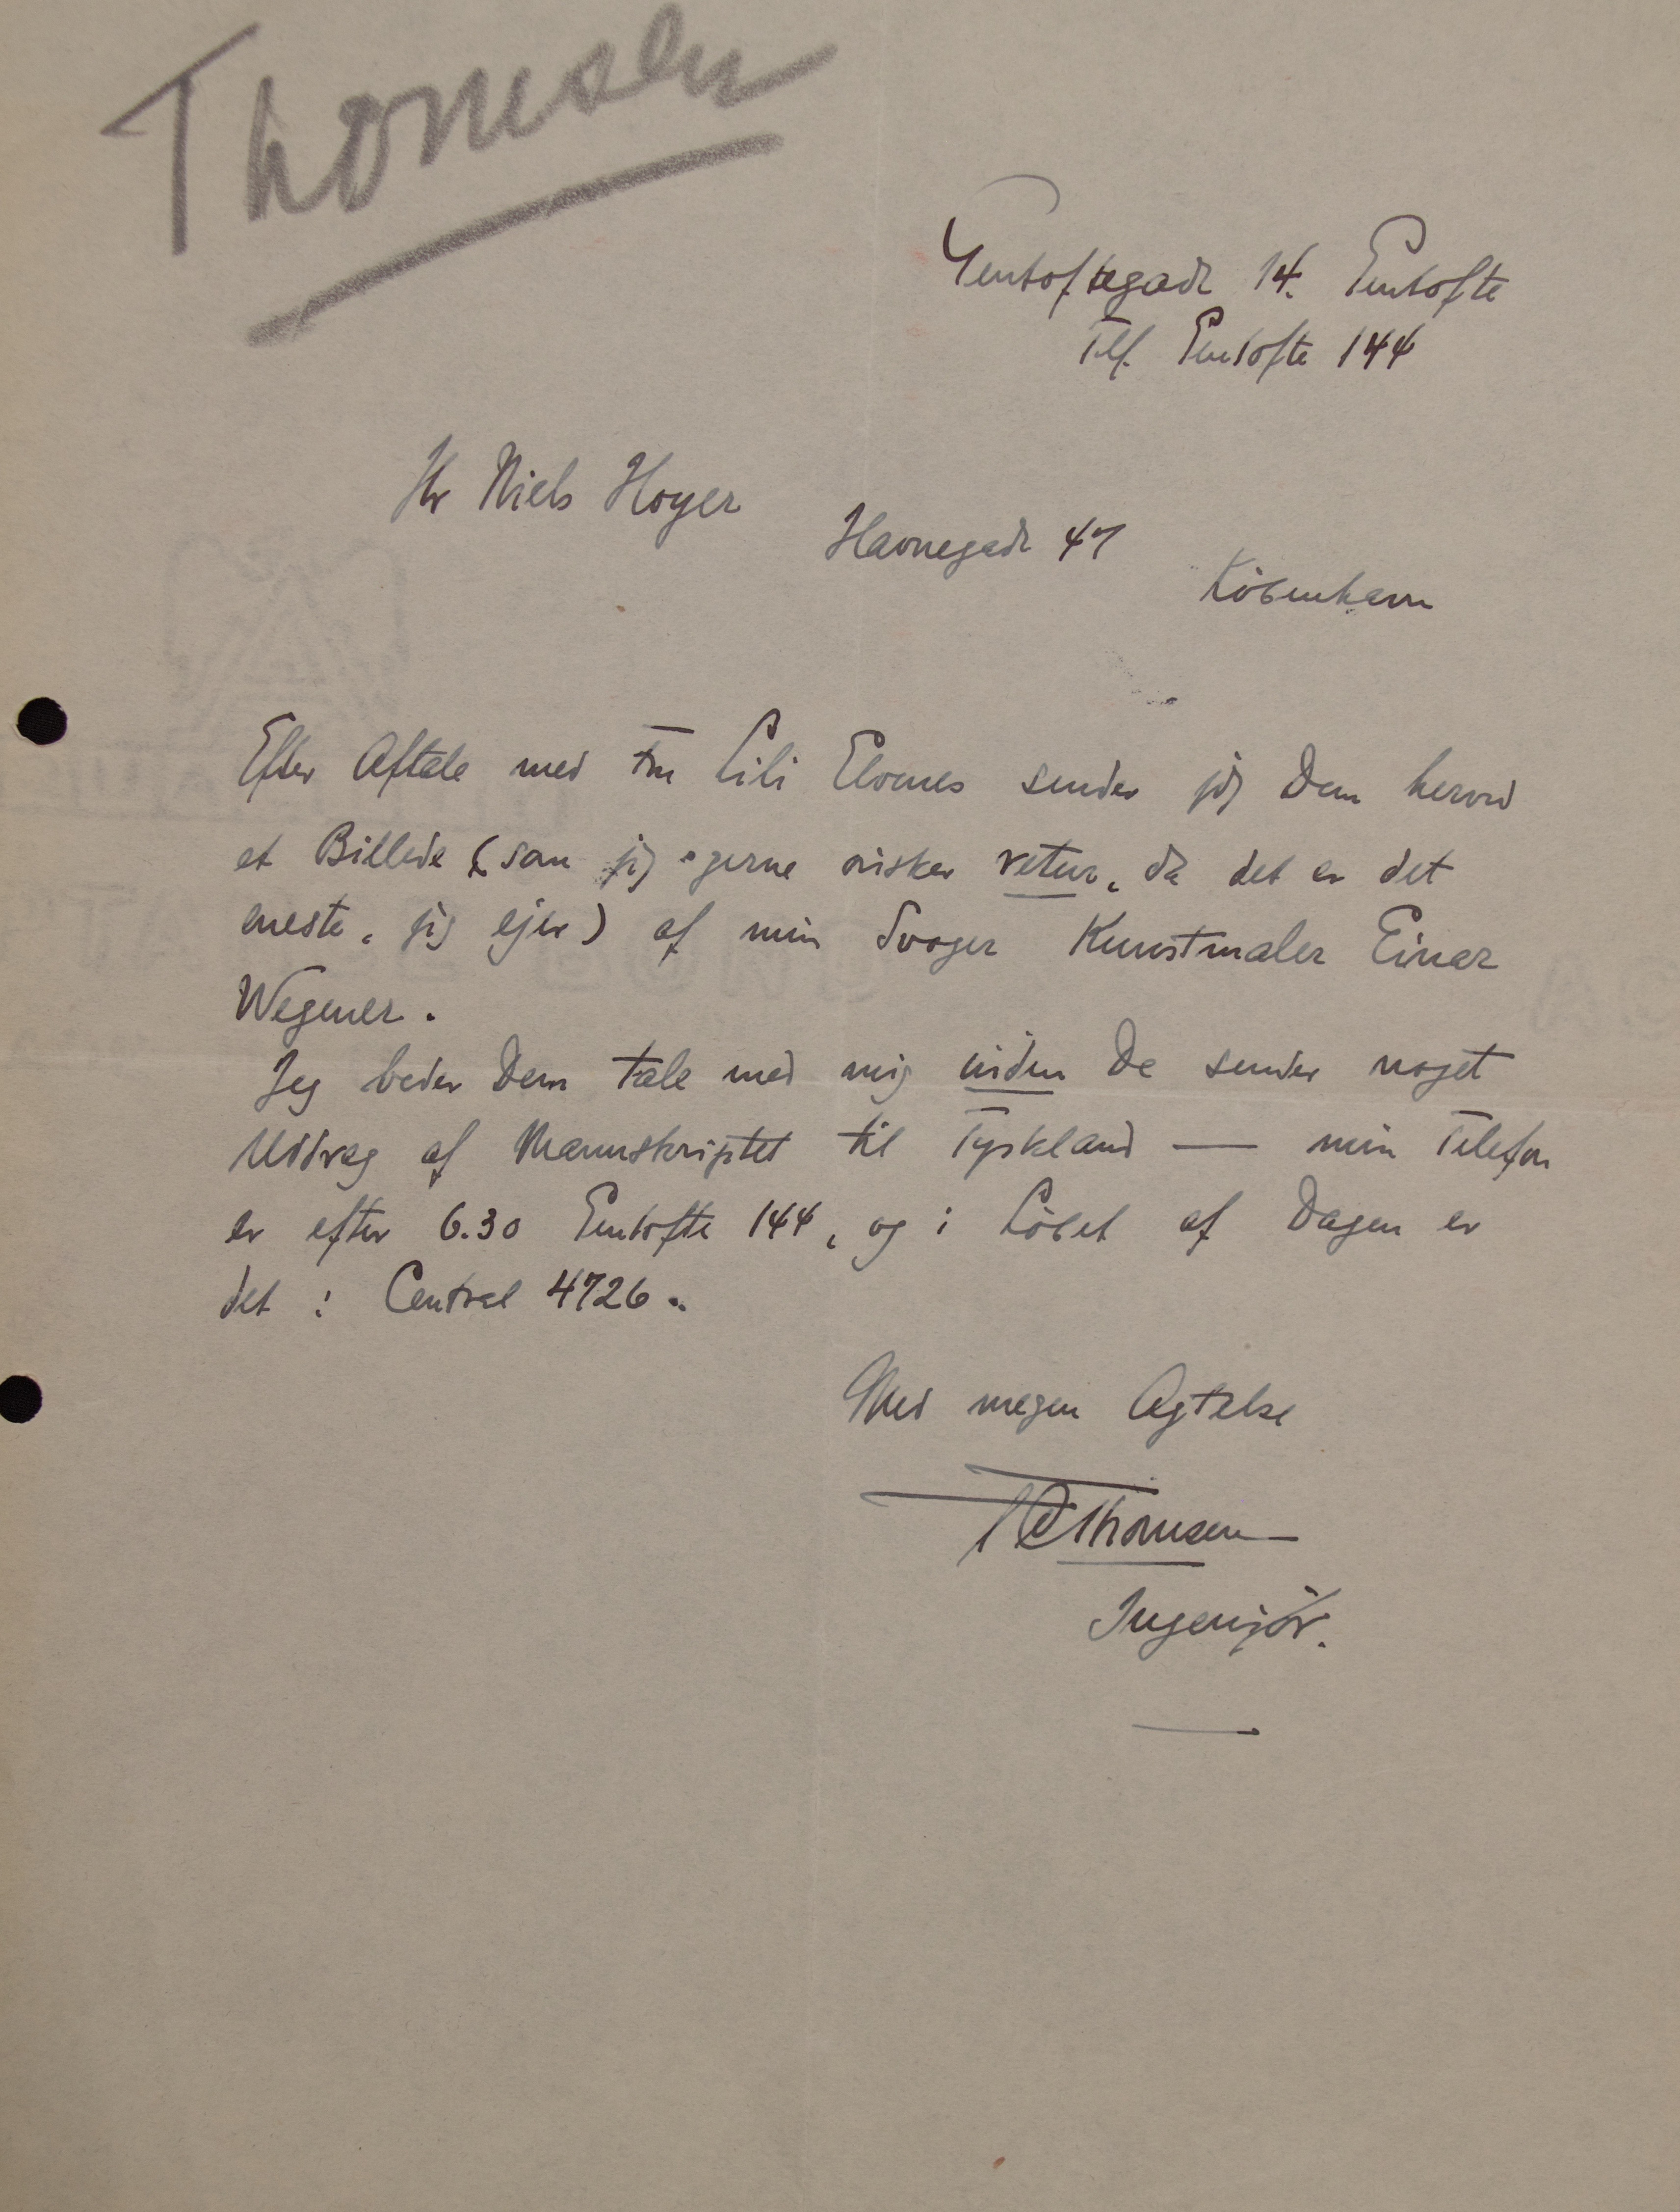 Thomsen
Gentoftegade 14. Gentofte
Tlf. Gentofte 144
Hr Niels Hoyer
Havnegade 47
København
Efter Aftale med Fru Lili Elvenes sender jeg Dem herved
et Billede (som jeg gerne ønsker retur, da det er det
eneste, jeg ejer) af min Svoger Kunstmaler Einar
Wegener.
Jeg beder Dem tale med mig inden De sender noget
Uddrag af Manuskriptet til Tyskland — min Telefon
er efter 6.30 Gentofte 144, og i Løbet af Dagen er
det : Central 4726.
Med megen Agtelse
Thomsen
Ingeniør.